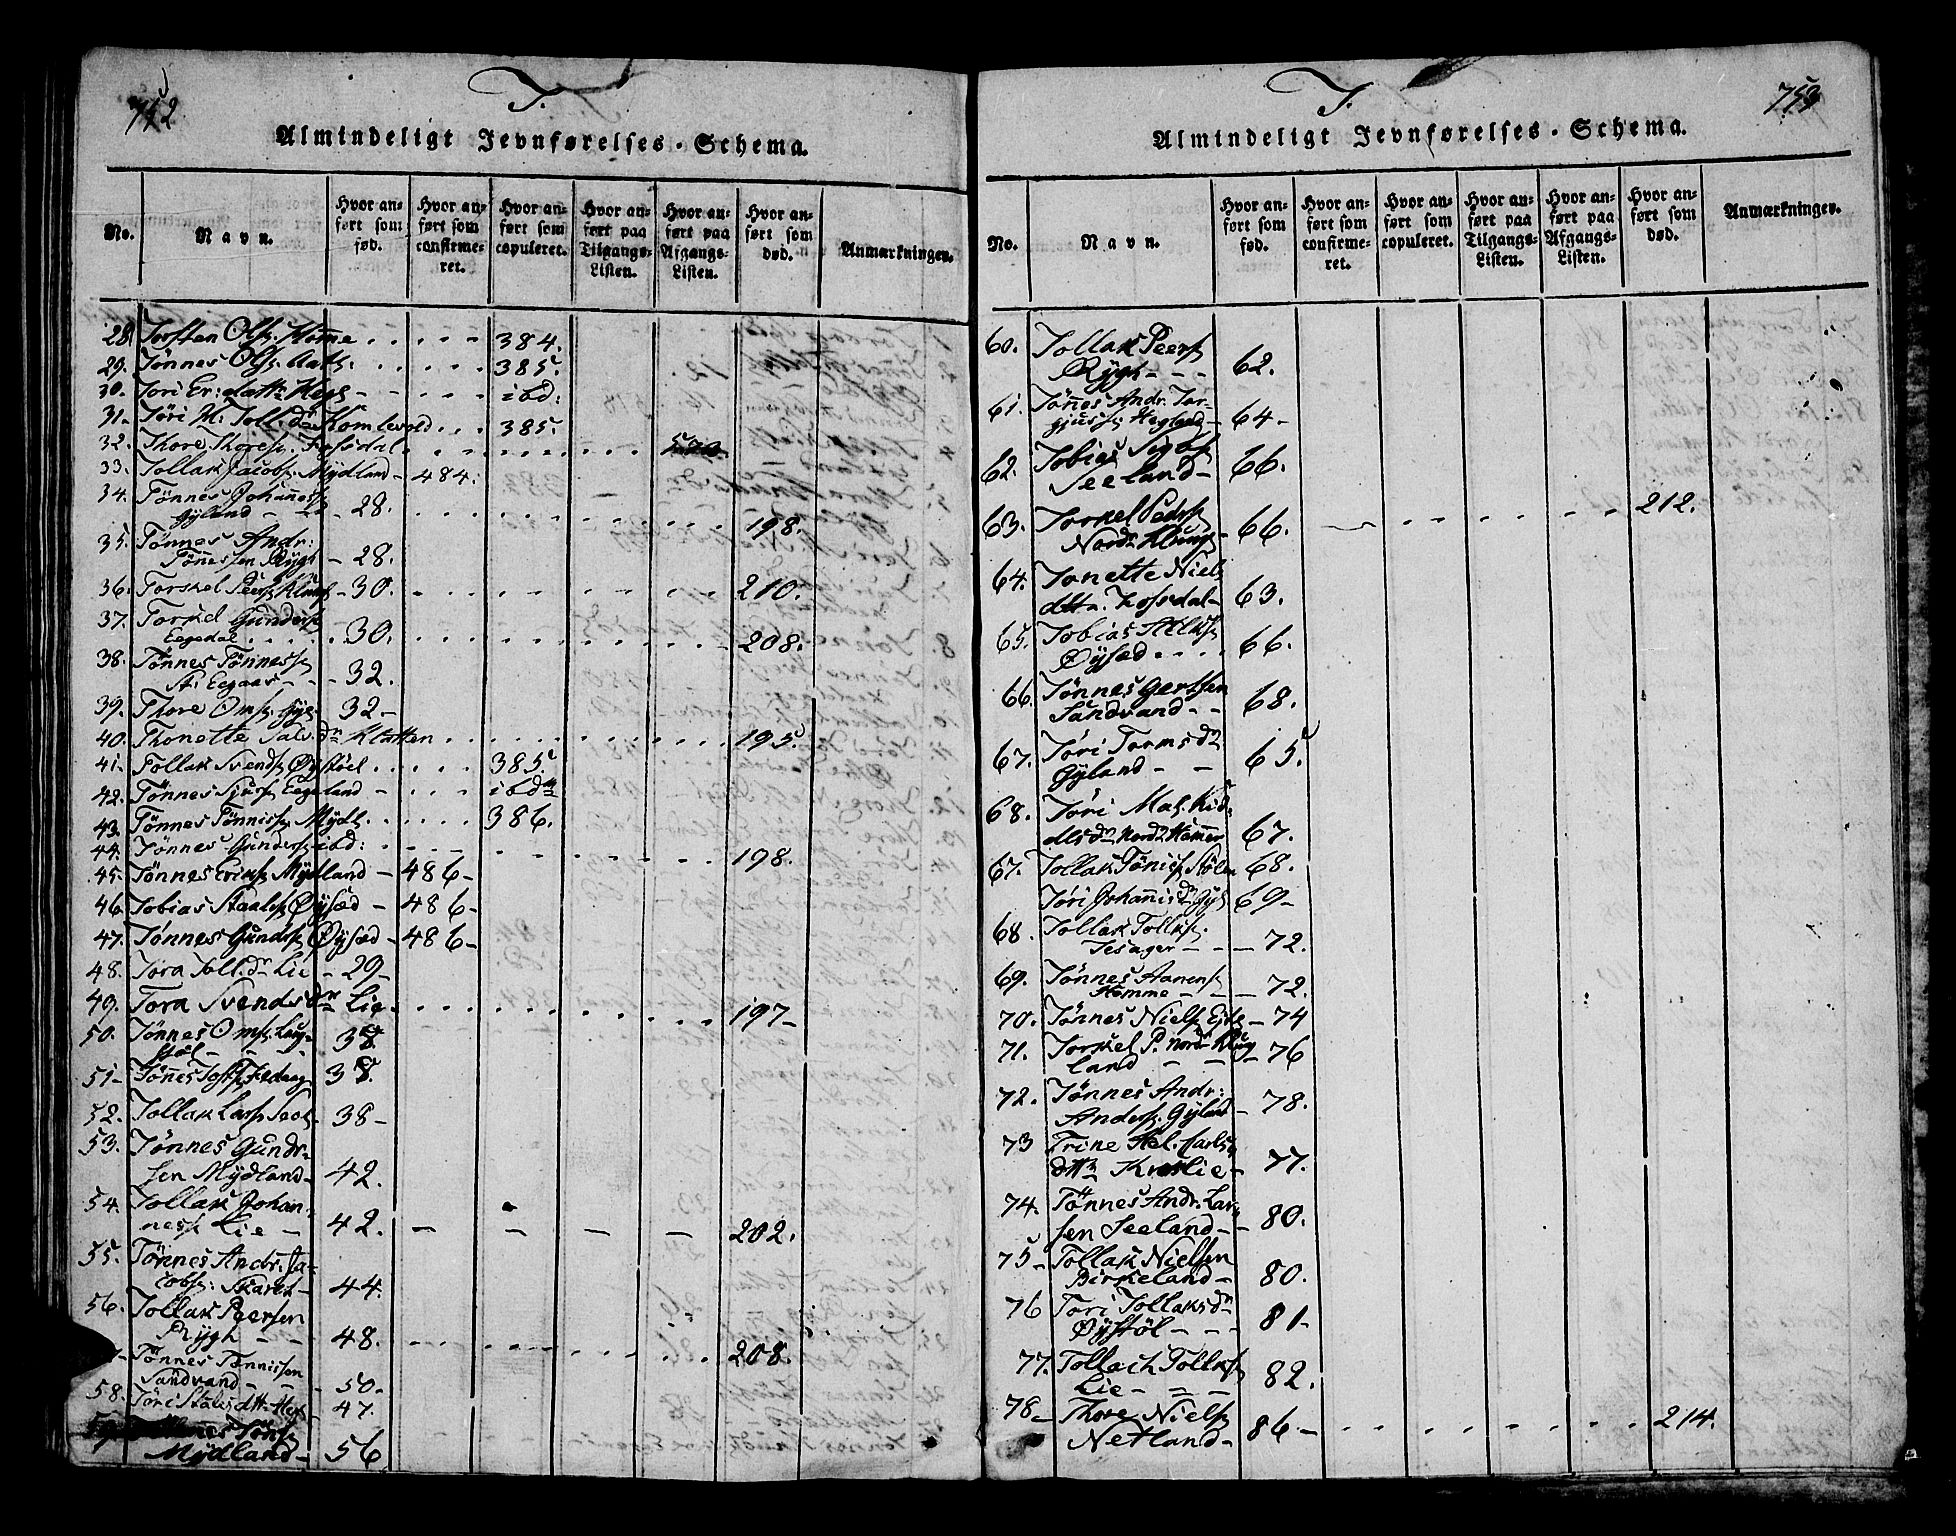 752
T.
Almindeligt Jevnførelses-Schema.
No.
Navn.
Hvor anført som fød.
Hvor anført som confirmeret.
Hvor anført som copuleret.
Hvor anført paa Tilgangs-Listen.
Hvor anført paa Afgangs-Listen.
Hvor anført som død.
Anmærkninger.
28. Torsten Ols. Homme . . . . . 384.
29. Tönnes Ols. Aats. . . . . . 385.
30. Tori Er: datt: Hegs - - - - ibd:
31. Töri M. Toll. dr Komlevold . . . 385.
32. Thore Thores. Fossdal . . . . . . . . .
33. Tollak Jacobs. Mydland - 484.
34. Tönnes Johaness.
Gyland - - 28. . . . . . . . 198.
35. Tönnes Andr:
Tönessen Rygh - 28.
36. Torkel Peers. Klungl. - 30. . . . . . . 210.
37. Torkel Gunders.
Eegedal . . . . . 30. . . . . . . 208.
38. Tönnes Tönness.
St. Eegaas - - - 32.
39. Thore Oms. Gyl. 32-
40. Thonette Salv. dr Klatten . . . . . . . 195.
41- Tollak Svends. Öystöel . . . . . 385
42. Tönnes Sjurs. Eegeland - . . . ibdm
43. Tönnes Tönniss. Mydl. . . . . . 386.
44. Tönnes Gunders. ibd: . . . . . . . 198.
45. Tönnes Eriks. Mydland - 486-
46 Tobias Staals. Öysæd - 486-
47. Tönnes Gunds. Öysæd - 486-
48. Tora Toll. dr Lie - 29-
49. Tora Svends dr Lie . . . . . . . . 197-
50. Tönnes Oms. Laug-
støl - - - 38
51- Tönnes 38.
52. Tollak Lars. 38-
53. Tönnes Gundr-
sen Mydland- 42.
54. Tollak Johan-
ness. Lie - 42. - - - - 202.
55. Tönnes Andr. Ja-
cobs: Skaret- 44.
56. Tollak Peersen
Rygh - - 48. . . . . . . . 208.
- Tönnes Tönnissen
Sandvand - - - 50.
58. Töri Stals dtt. 47.
Töns.
Mydland- 56
753
T.
Almindeligt Jevnførelses-Schema.
No.
Navn.
Hvor anført som fød.
Hvor anført som confirmeret.
Hvor anført som copuleret.
Hvor anført paa Tilgangs-Listen.
Hvor anført paa Afgangs-Listen.
Hvor anført som død.
Anmærkninger.
60. Tollak Peers.
Rygh - - - 62.
61. Tönnes Andr. Tor-
gjuss. Hegland- 64-
62. Tobias
Seeland- 66.
63. Torkel Peders.
Nordr Klungl. - 66. . . . . . . . 212.
64. Tonette Niels
dttr. Fossdal- 63.
65. Tobias
Öysæd . . . . 66.
66. Tönnes Gertsen
Sandvand - - 68.
67. Töri Torms dr
Gyland - - 65.
68. Töri Mal. Kid-
dls dr Nordr Hommer 67.
67. Tollak Tönis. Stölen 68.
Töri Johannis dr Gyl. 69-
68. Tollak Tolks.
Tesager - - - 72.
69. Tönnes Aanens.
Homme - - - 72.
70. Tönnes Niels. - 74
71. Torkel P. Nordr Klug-
land - - - 76
72. Tönnes Andr:
Anders. Gyland - 78.
73 Trine Hel. Carls-
dttr Kvaslie- 77.
74. Tönnes Andr. Lar-
sen Seeland- 80.
75- Tollak Nielsen
Birkeland- 80.
76 Tori Tollaks dr
Öystöl - - - 81-
77. Tollach Tollks.
Lie - - - 82.
78- Thore Niels.
Netland- 86- . . . . . . . 214.